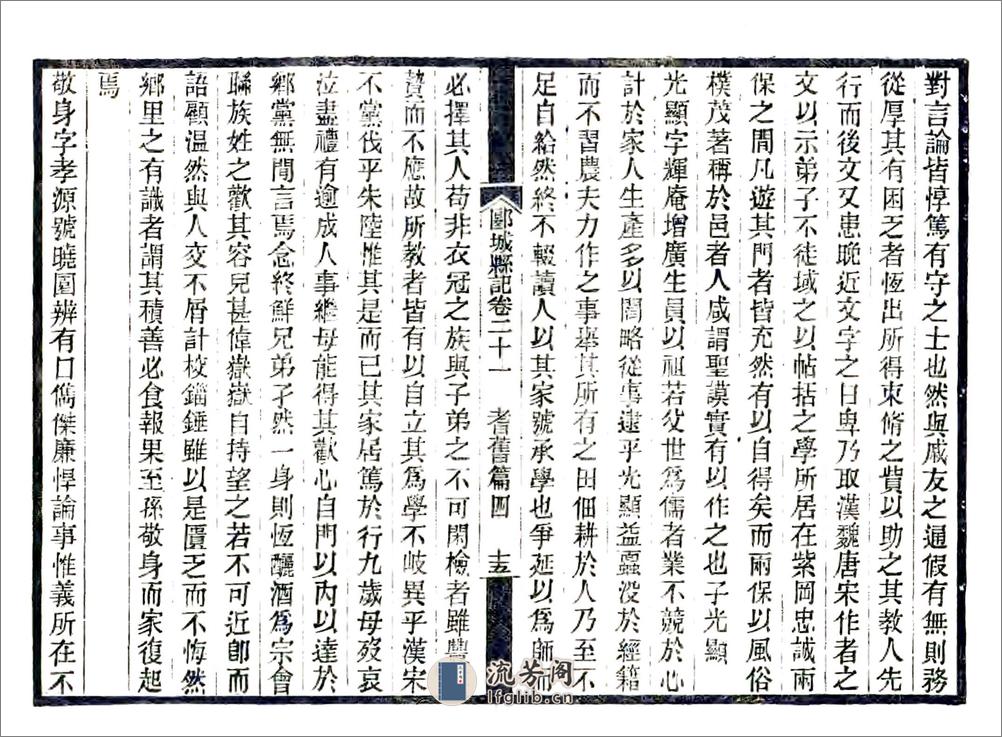 對言論皆惇篤有守之士也然與戚友之通假有無則務
從厚其有困乏者恆出所得束脩之貲以助之其教人先
行而後文又患晩近文字之日卑乃取漢魏唐宋作者之
文以示弟子不徒域之以帖括之學所居在紫岡忠誠兩
保之間凡遊其門者皆充然有以自得矣而兩保以風俗
樸茂著稱於邑者人咸謂聖謨實有以作之也子光顯
光顯字輝庵增廣生員以祖若父世爲儒者業不競於心
計於家人生產多以闊略從事逮乎光顯益覃没於經籍
而不習農夫力作之事舉其所有之田佃耕於人乃至不
足自給然終不輟讀人以其家號承學也爭延以爲師而
郾城縣記卷二十一 耆舊篇四 十五
必擇其人苟非衣冠之族與子弟之不可閑檢者雖豐
贄而不應故所教者皆有以自立其爲學不岐異乎漢宋
不黨伐乎朱陸惟其是而已其家居篤於行九歲母歿哀
泣盡禮有逾成人事繼母能得其歡心自門以內以達於
鄉黨無閒言焉念終鮮兄弟孑然一身則恆釃酒爲宗會
聯族姓之歡其容皃甚偉嶽嶽自持望之若不可近卽而
語顧温然與人交不屑計校錙錘雖以是匱乏而不悔然
鄉里之有識者謂其積善必食報果至孫敬身而家復起
焉
敬身字孝源號曉園辨有口儁傑廉悍論事惟義所在不
流芳阁
lfglib.cn